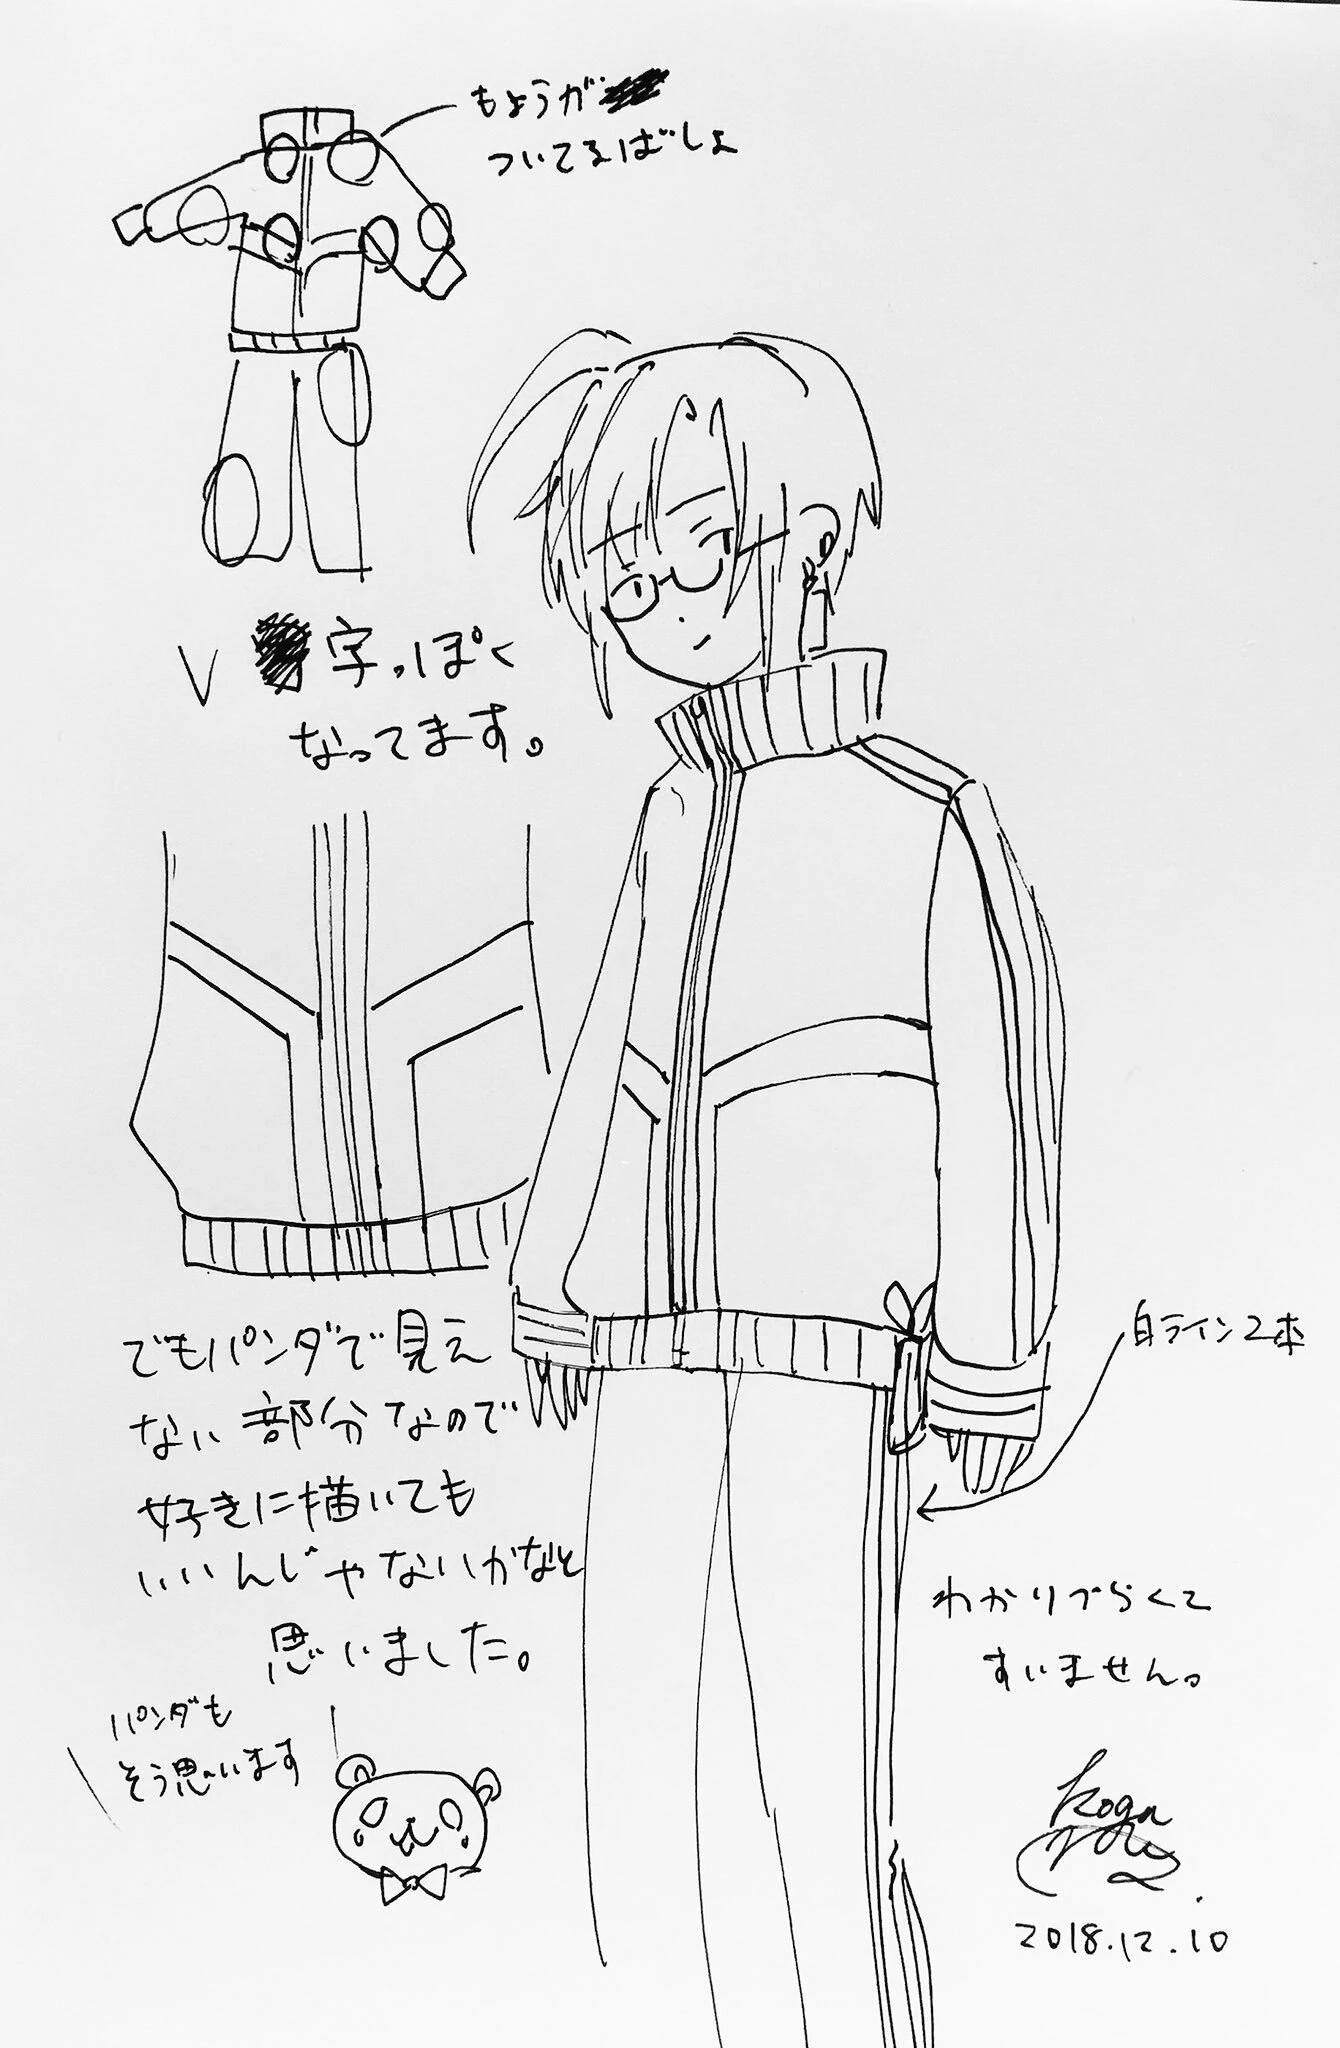 もようが
ついてるばしょ
V 字っぽく
なってます。
でもパンダで見え
ない部分なので
好きに描いても
いいんじゃないかなと
思いました。
パンダも
そう思います
白ライン2本
わかりづらくて
すいません。
Koga
2018.12.10